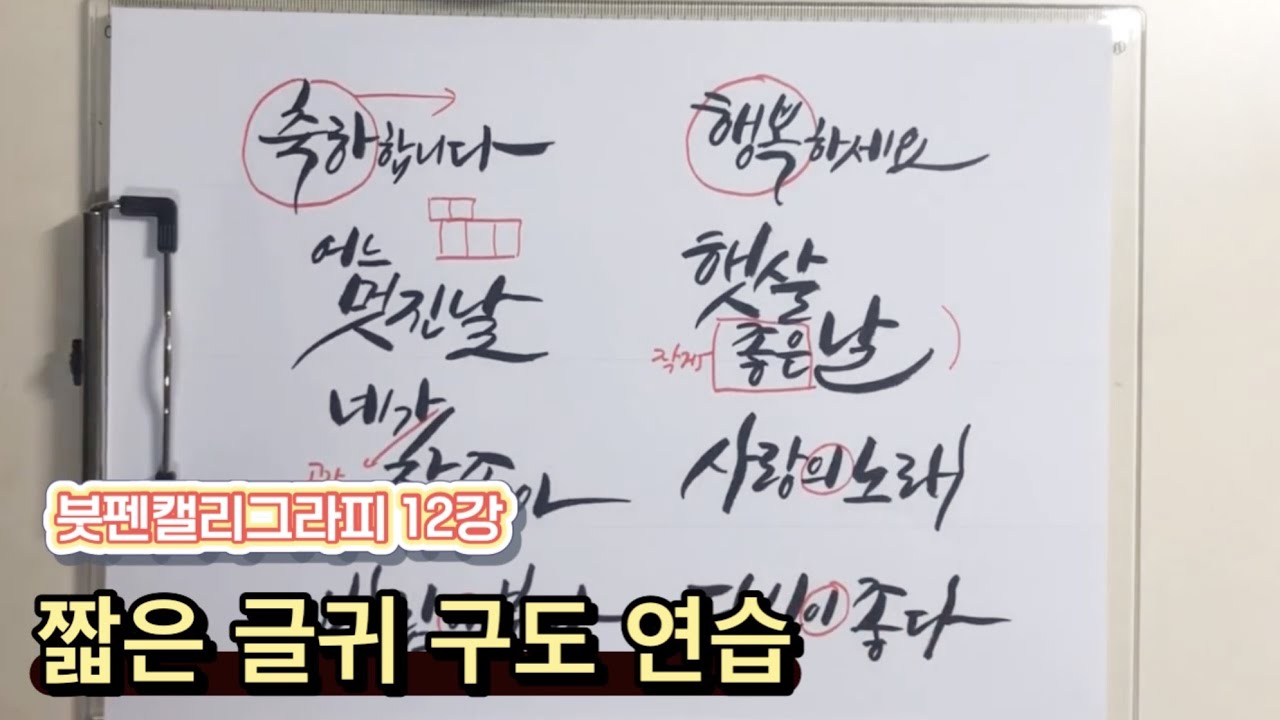 축하합니다
행복하세요
어느
멋진날
햇살
좋은날
작게
네가
참좋아
사랑의노래
좋다
붓펜캘리그라피 12강
짧은 글귀 구도 연습